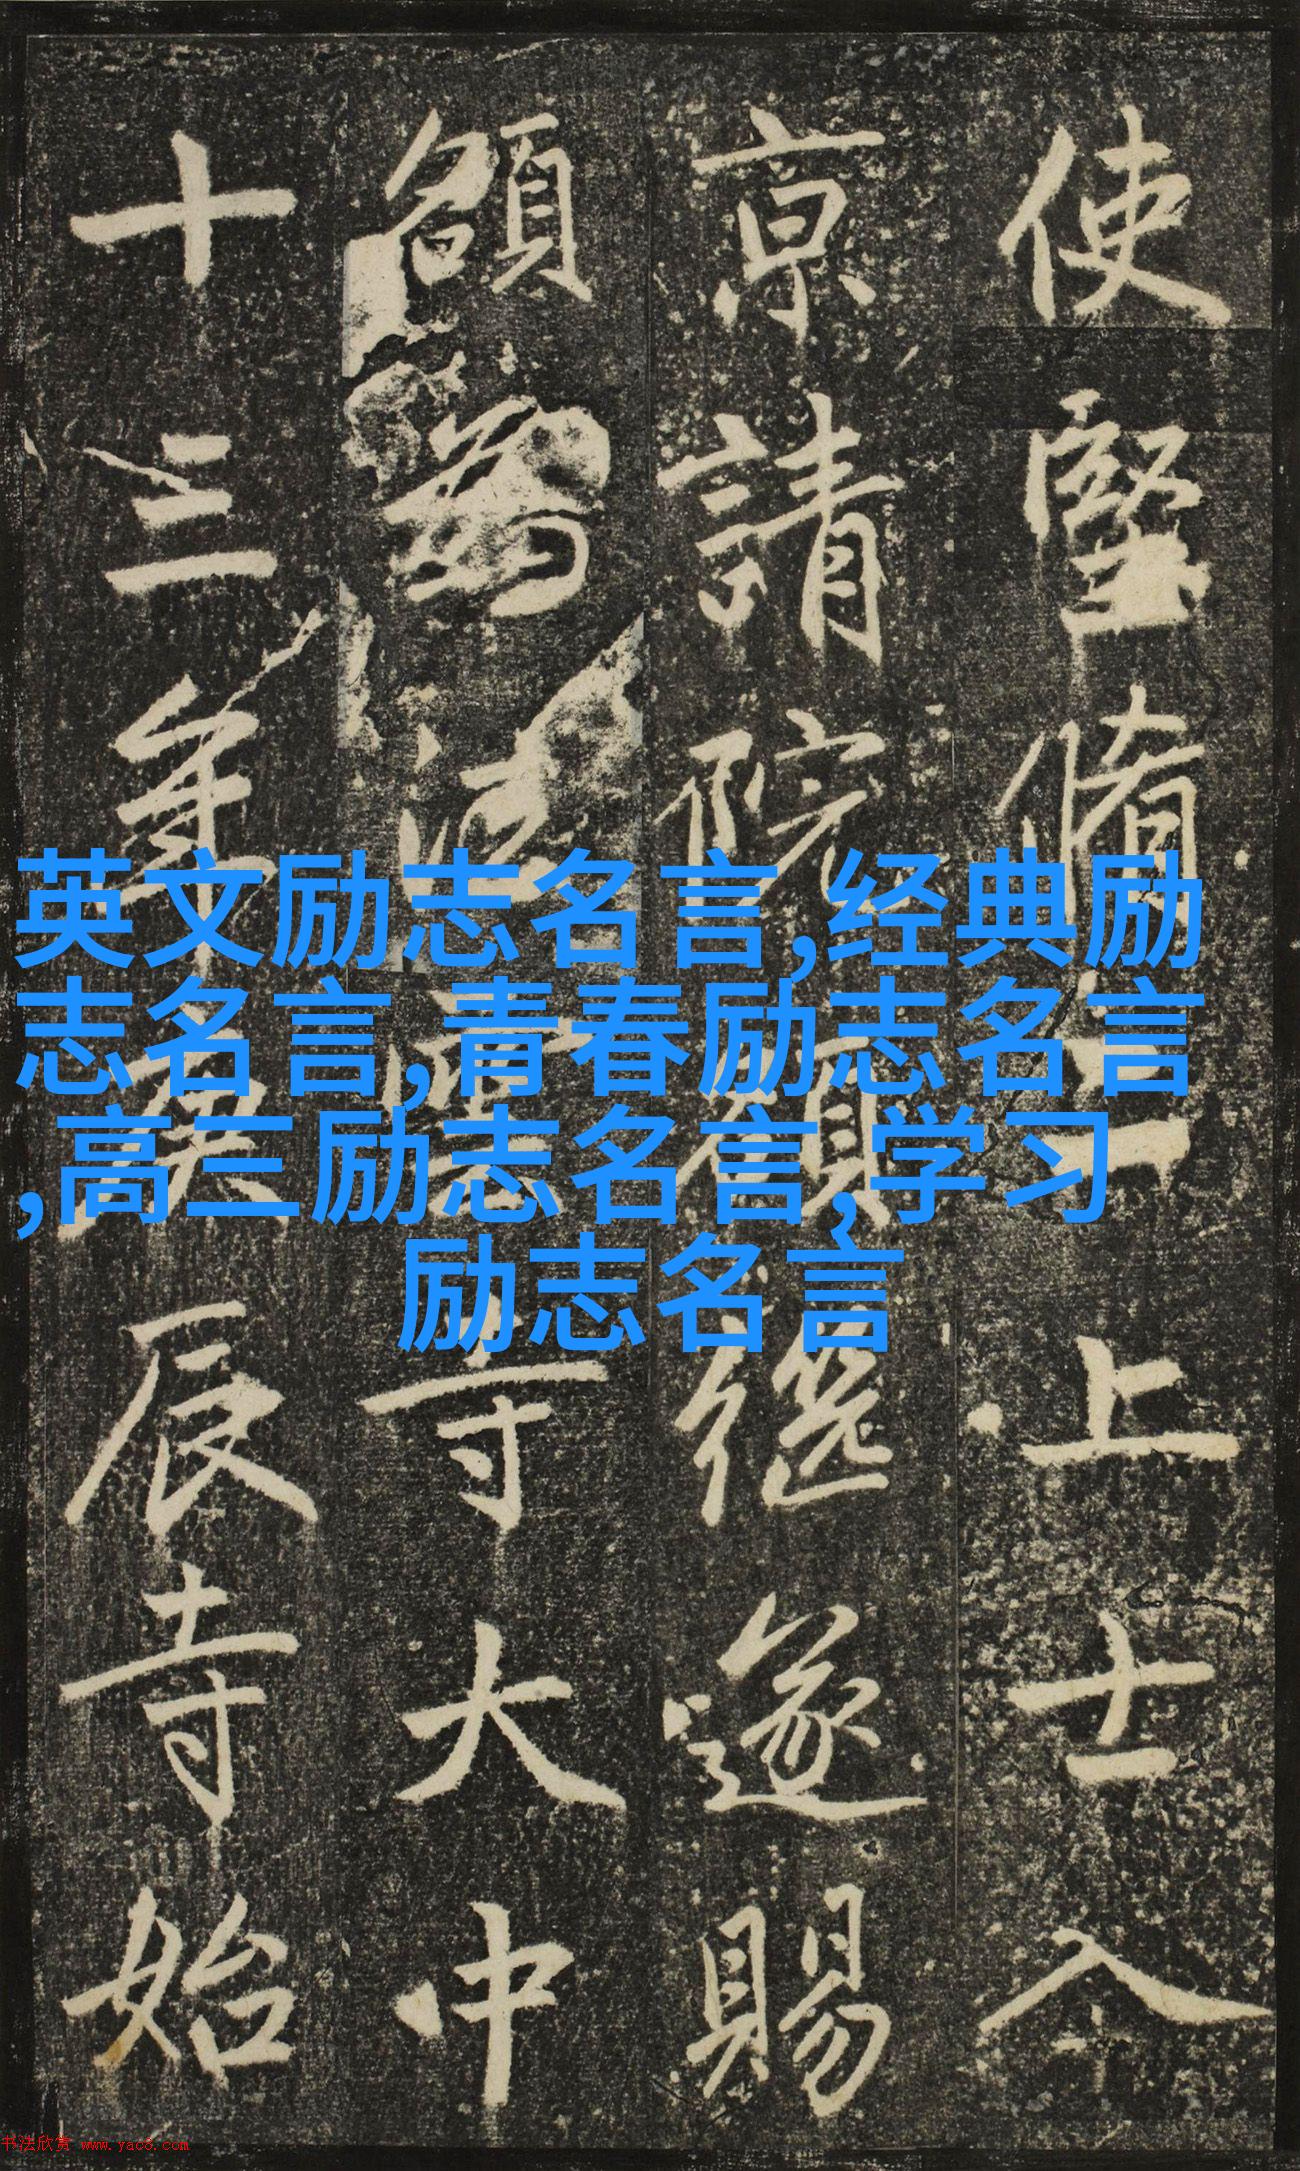 使堅脩二上士入
京請院額繼遂賜
額爲法雲寺大中
十三年庚辰寺始
英文励志名言,经典励
志名言,青春励志名言
,高三励志名言,学习
励志名言
书法欣赏 www.yac8.com